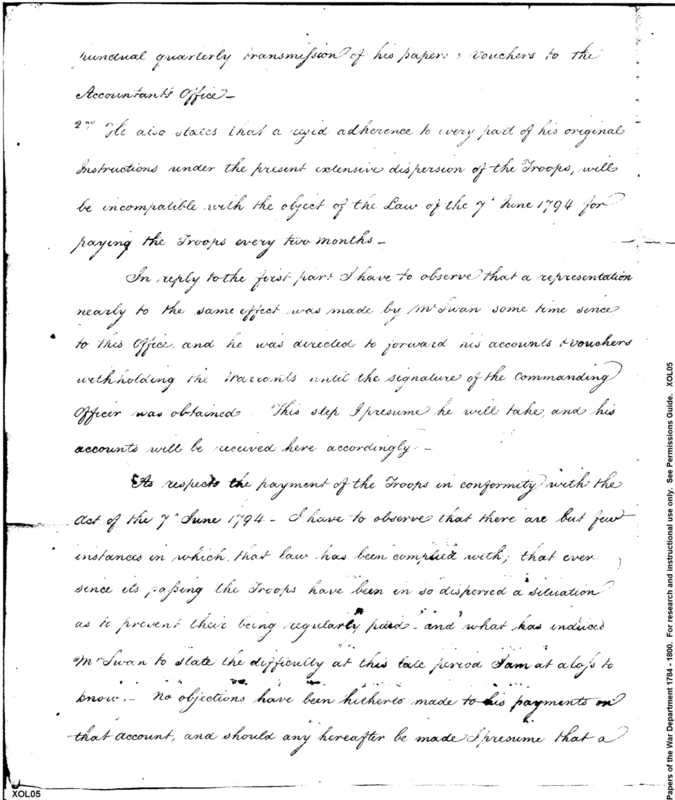 punctual quarterly transmission of his papers & Vouchers to the
Accountants Office –
2nd He also states that a rigid adherence to every part of his original
Instructions under the present extensive dispersion of the Troops, will
be incompatible with the object of the Law of the 7th June 1794 for
paying the Troops every two months –
In reply to the first part I have to observe that a representation
nearly to the same effect was made by Mr Swan some time since
to this Office and he was directed to forward his accounts & vouchers
withholding the Warrants until the signature of the Commanding
Officer was obtained This step I presume he will take, and his
accounts will be received here accordingly –
As respects the payment of the Troops in conformity with the
Act of the 7th June 1794 – I have to observe that there are but few
instances in which that law has been complied with; that ever
since its passing the Troops have been in so dispersed a situation
as to prevent their being regularly paid – and what has induced
Mr Swan to state the difficulty at this late period I am at a loss to
know – No objections have been hitherto made to his payments on
that account, and should any hereafter be made I presume that a
XOL05
Papers of the War Department 1784 - 1800. For research and instructional use only. See Permissions Guide. XOL05